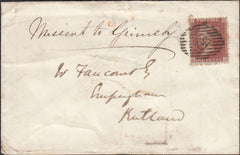 Missent to Grimsby
W Faucourt Esq
Empingham
Rutland